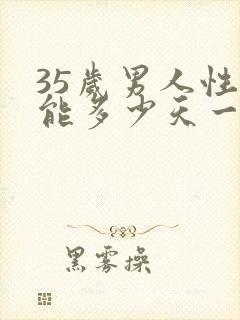 35歲男人性
能多少天一
黑雾操